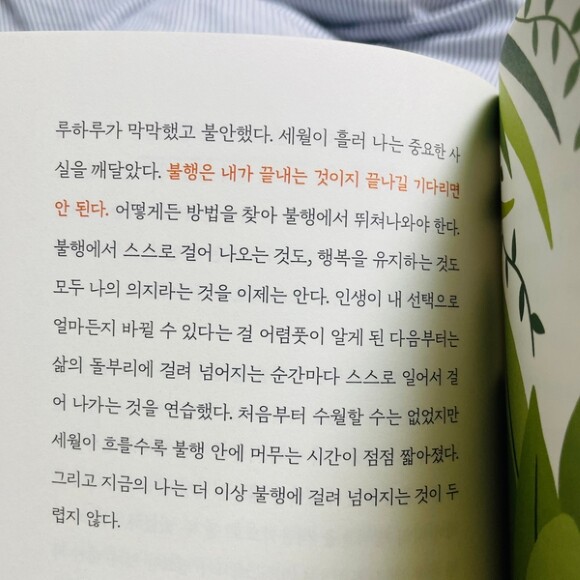 루하루가 막막했고 불안했다. 세월이 흘러 나는 중요한 사
실을 깨달았다. 불행은 내가 끝내는 것이지 끝나길 기다리면
안 된다. 어떻게든 방법을 찾아 불행에서 뛰쳐나와야 한다.
불행에서 스스로 걸어 나오는 것도, 행복을 유지하는 것도
모두 나의 의지라는 것을 이제는 안다. 인생이 내 선택으로
얼마든지 바뀔 수 있다는 걸 어렴풋이 알게 된 다음부터는
삶의 돌부리에 걸려 넘어지는 순간마다 스스로 일어서 걸
어 나가는 것을 연습했다. 처음부터 수월할 수는 없었지만
세월이 흐를수록 불행 안에 머무는 시간이 점점 짧아졌다.
그리고 지금의 나는 더 이상 불행에 걸려 넘어지는 것이 두
렵지 않다.